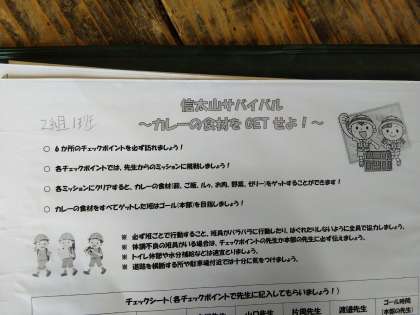 信太山サバイバル
～カレーの食材をGETせよ！～
2組 13班
○ 6か所のチェックポイントを必ず訪れましょう！
○ 各チェックポイントでは、先生からのミッションに挑戦しましょう！
○ 各ミッションにクリアすると、カレーの食材(箱、ご飯、ルウ、お肉、野菜、ゼリー)をゲットすることができます！
○ カレーの食材をすべてゲットした班はゴール(本部)を目指しましょう！
※ 必ず班ごとで行動すること、班員がバラバラに行動したり、はぐれたりしないように全員で協力しましょう。
※ 体調不良の班員がいる場合は、チェックポイントの先生か本部の先生に必ず伝えましょう。
※ トイレ休憩や水分補給などは適宜とりましょう。
※ 道路を横断する所や駐車場付近では十分に気をつけましょう。
チェックシート(各チェックポイントで先生に記入してもらいましょう！)
山口先生
片岡先生
渡邉先生
ゴール時間
(本部の先生)